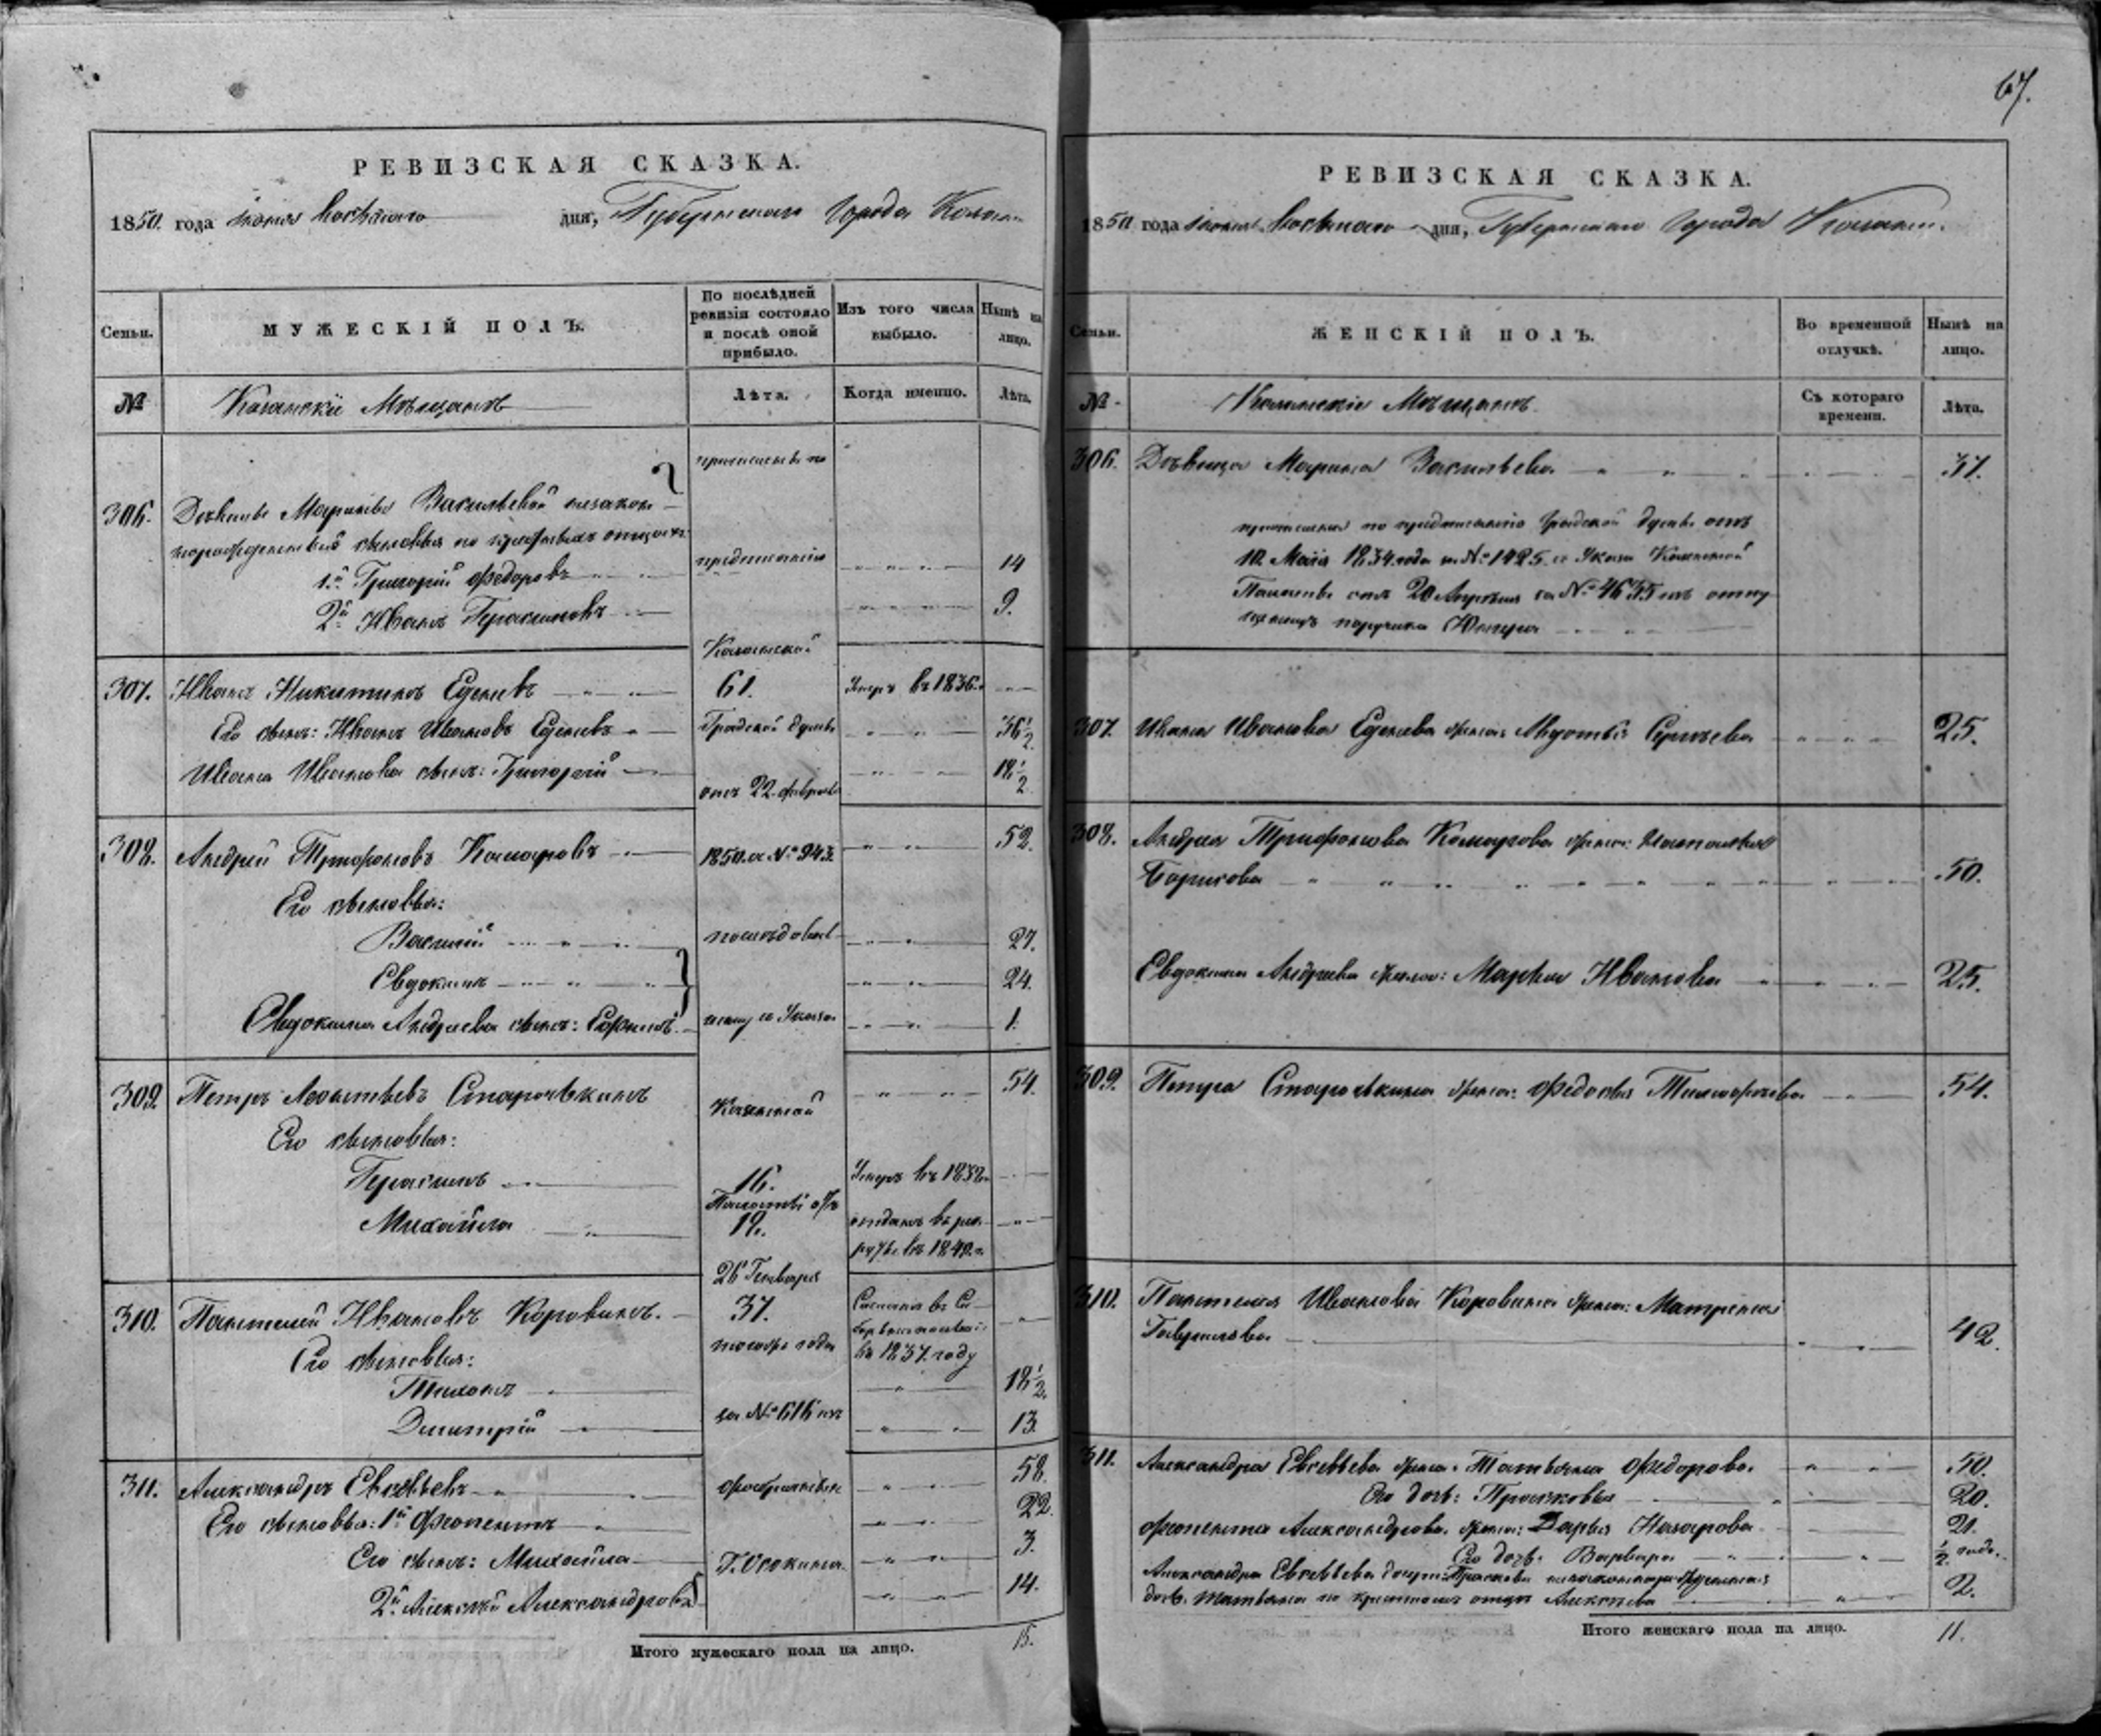 67.
РЕВИЗСКАЯ СКАЗКА.
1850. года Іюня дня, Губернскаго Города Казани
Семьи.
МУЖЕСКІЙ ПОЛЪ.
По послѣдней ревизіи состояло и послѣ оной прибыло.
Изъ того числа выбыло.
Нынѣ на лицо.
№
Казанскіе Мѣщане
Лѣта.
Когда именно.
Лѣта.
причислены по
306. Дѣвицы Марины Васильевой незакон-
норожденные сыновья по крестнымъ отцамъ
предписанію
1й Григорій Федоровъ 14
2й Иванъ Герасимовъ 9.
Казанской
307. Иванъ Никитинъ Еденевъ 61. Умеръ въ 1836.
Его сынъ: Иванъ Ивановъ Еденевъ Градской Думы 36½
Ивана Иванова сынъ: Григорій 18½
отъ 22 февраля
308. Андрей Трифоновъ Комаровъ 1850 за № 943. 52.
Его сыновья:
Василій 27.
Евдокимъ 24.
Евдокима Андреева сынъ: Ефимъ 1.
309. Петръ Леонтьевъ Старочкинъ 54.
Казенной
Его сыновья:
Герасимъ 16. Умеръ въ 1838
Палаты отъ
Михайла 18. отданъ въ рек-
руты въ 1840 г.
26 Генваря
310. Пантелей Ивановъ Коровинъ. 37. Сосланъ въ Си-
бирь на
въ 1837. году
Его сыновья: того же года
Тихонъ 18½.
Дмитрій за № 616 изъ 13.
311. Александръ Евсѣевъ 58.
Его сыновья: 1й Феопентъ 22.
Его сынъ: Михайла Г. Осокина. 3.
2й Алексѣй Александровъ 14.
Итого мужескаго пола на лицо. 15.
РЕВИЗСКАЯ СКАЗКА.
1850 года Іюня дня, Губернскаго Города Казани.
Семьи.
ЖЕНСКІЙ ПОЛЪ.
Во временной отлучкѣ.
Нынѣ на лицо.
№
Казанскіе Мѣщане.
Съ котораго времени.
Лѣта.
306. Дѣвица Марина Васильева 37.
причислена по предписанію Градской Думы отъ
10. Маія 1834 года за № 1425. и Указа Казенной
Палаты отъ 20 Апрѣля за № 4635 изъ отпу-
щенныхъ поручика
307. Ивана Иванова Еденева жена: Авдотья Сергѣева 25.
308. Андрея Трифонова Комарова жена: Настасья
Борисова 50.
Евдокима Андреева жена: Марья Иванова 25.
309. Петра Старочкина жена: Федосья Тимофеева 54.
310. Пантелея Иванова Коровина жена: Матрена
Гаврилова 42.
311. Александра Евсѣева жена: Татьяна Федорова. 50.
Его дочь: Прасковья 20.
Феопента Александрова жена: Дарья Назарова 21.
Его дочь: Варвара ½ года.
Александра Евсѣева дочери: Прасковьи незаконнорожденная
дочь Татьяна по крестномъ отцѣ Алексѣева 2.
Итого женскаго пола на лицо. 11.